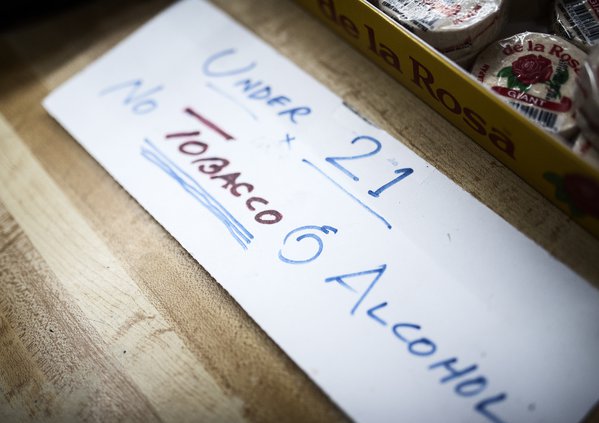 UNDER 21
No TOBACCO & ALCOHOL
de la Rosa
de la Rosa
GIANT